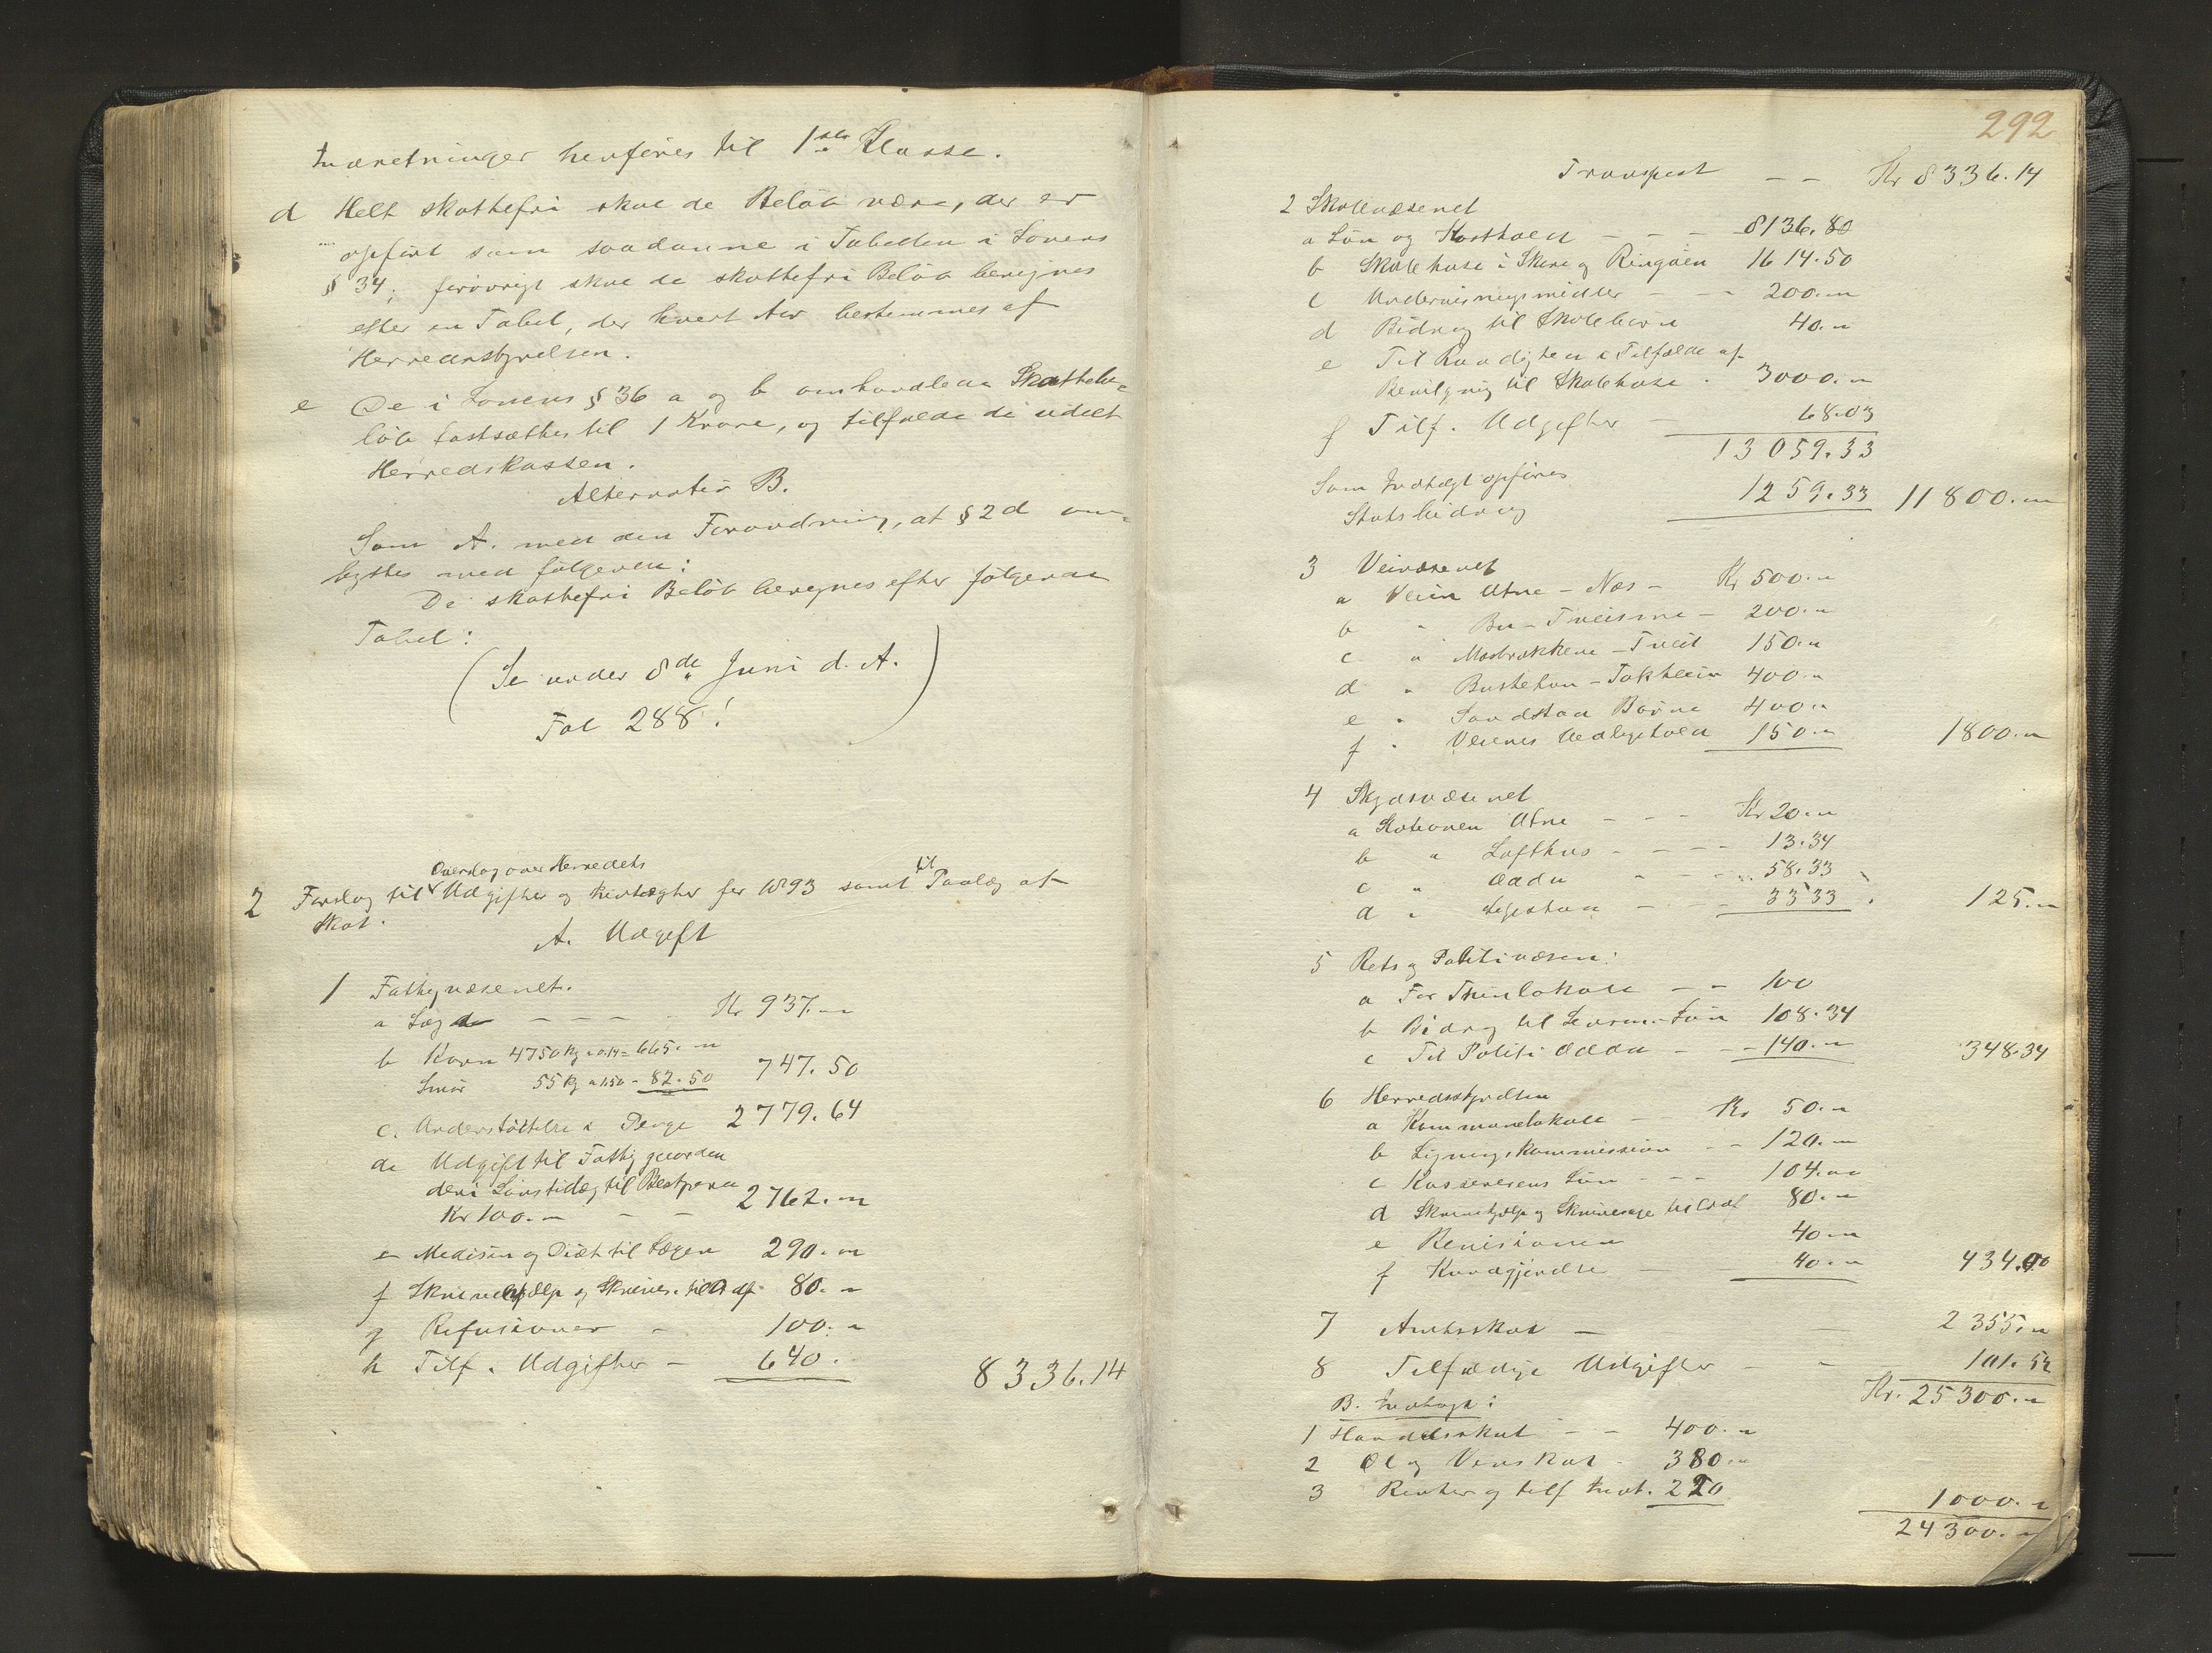 Indretninger henføres til 1ste Klasse.
d Helt skattefri skal de Beløb være, der er
opført som saadanne i Tabellen i Lovens
§ 34; forøvrigt skal de skattefri Beløb beregnes
efter en Tabel, der hvert Aar bestemmes af
Herredsstyrelsen.
e De i Lovens § 36 a og b omhandlede Skattebe-
løb fastsættes til 1 Krone, og tilfalde de udelt
Herredskassen.
Alternativ B.
Som A. med den Forandring, at § 2 d om-
byttes med følgende:
De skattefri Beløb beregnes efter følgende
Tabel:
(Se under 8de Juni d. A.
Fol 288!)
Overslag over Herredets
2 Forslag til Udgifter og Indtægter for 1893 samt til Paalæg af
Skat.
A. Udgift
1 Fattigvæsenet.
a Lægd - - - - Kr 937.-
b Korn 4750 kg a 0.14 = 665.-
Smør 55 kg a 1.50 - 82.50 747.50
c. Understøttelse i Penge 2779.64
d. Udgift til Fattiggaarden
deri Lønstillæg til Bestyreren
Kr 100.- - - 2762.-
e Medisin og Diæt til Lægen 290.-
f Skrivehjælp og Skrives. til Ordf. 80.-
g Refusioner - 100.-
h Tilf. Udgifter - 640. 8336.14
292
Transport - - Kr 8336.14
2 Skolevæsenet
a Løn og Kosthold - - - 8136.80
b Skolehuse i Skare og Ringøen 1614.50
c Undervisningsmidler - - - 200.-
d Bidrag til Skolebørn 40.-
e Til Raadighed i Tilfælde af
Bevilgning til Skolehuse . 3000.-
f Tilf. Udgifter - 68.03
13059.33
Som Indtægt opføres
Statsbidrag 1259.33 11800.-
3 Veivæsenet
a Veien Utne - Næs - Kr 500.-
b " Bu - Tveisme - 200.-
c " Maabrækkene - Tveit 150.-
d " Bustetun - Tokheim 400.-
e " Sandstad Børve 400.-
f " Veienes Vedligehold 150.- 1800.-
4 Skydsvæsenet
a Stationen Utne - - - Kr 20.-
b " Lofthus - - - - 13.34
c " Odda - - - 58.33
d " - - - 33.33 125.-
5 Rets og Politivæsen:
a For Thinlokale - - 100
b Bidrag til Lensm. Løn 108.34
c Til Politi Odda - - - 140.- 348.34
6 Herredsstyrelsen
a Kommunelokale - Kr 50.-
b Ligningskommission - - 120.-
c Kassererens Løn - - - 104.-
d Skrivehjælp og Skrivesage til Ordf 80.-
e Revisionen 40.-
f Kundgjørelse - 40.- 434.00
7 Amtsskat - - 2355.-
8 Tilfældige Udgifter - - 101.52
Kr. 25300.-
B. Indtægt:
1 Handelsskat - - 400.-
2 Øl og Vinskat - 380.-
3 Renter og tilf Indt. 220
1000.-
24300.-